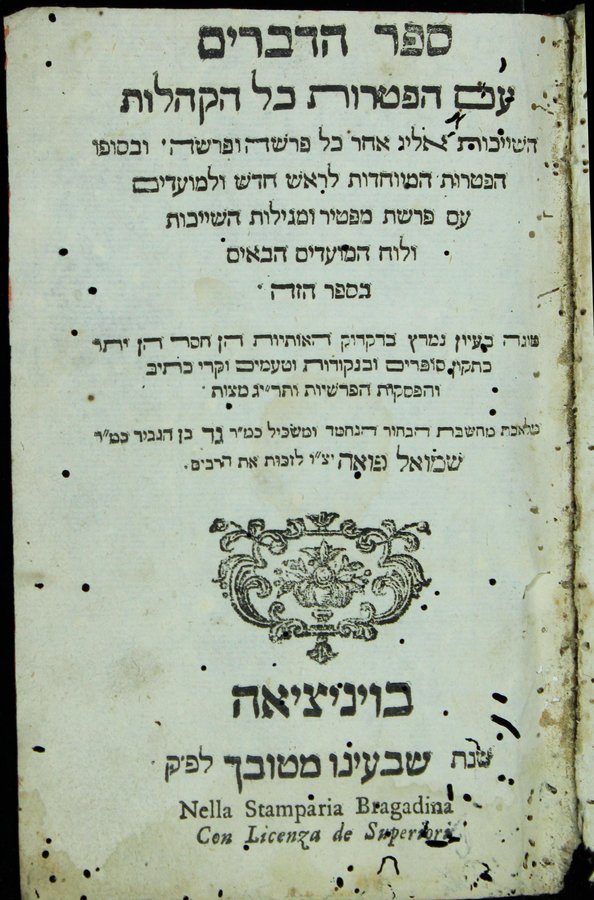 ספר הדברים
עם הפטרות כל הקהלות
השייכות אליו אחר כל פרשה ופרשה ׳ ובסופו
הפטרות המיוחדות לראש חדש ולמועדים
עם פרשת מפטיר ומגילות השייכות
ולוח המועדים הבאים
בספר הזה ׳
מוגה בעיון נמרץ בדקדוק האותיות הן חסר הן יתר
בתקון סופרים ובנקודות וטעמים וקרי כתיב
והפסקות הפרשיות ותרי״ג מצות
מלאכת מחשבת הבחור הנחמד ומשכיל כמ״ר גד בן הגביר כמ״ר
שמואל פואה יצ״ו לזכות את הרבים .
בויניציאה
שנת שבעינו מטובך לפ״ק
Nella Stamparia Bragadina
Con Licenza de Superiori